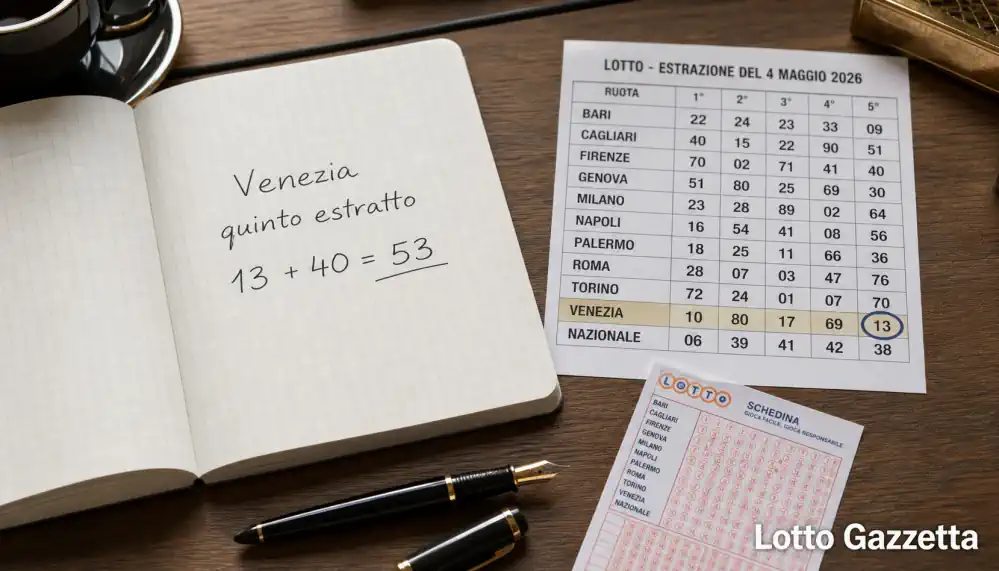 Venezia
quinto estratto
13 + 40 = 53
LOTTO - ESTRAZIONE DEL 4 MAGGIO 2026
RUOTA 1° 2° 3° 4° 5°
BARI 22 24 23 33 09
CAGLIARI 40 15 22 90 51
FIRENZE 70 02 71 41 40
GENOVA 51 80 25 69 30
MILANO 23 28 89 02 64
NAPOLI 16 54 41 08 56
PALERMO 18 25 11 66 36
ROMA 28 07 03 47 76
TORINO 72 24 01 07 70
VENEZIA 10 80 17 69 13
NAZIONALE 06 39 41 42 38
LOTTO
SCHEDINA
GIOCA FACILE, GIOCA RESPONSABILE
BARI
CAGLIARI
FIRENZE
GENOVA
MILANO
NAPOLI
PALERMO
ROMA
TORINO
VENEZIA
NAZIONALE
Lotto Gazzetta